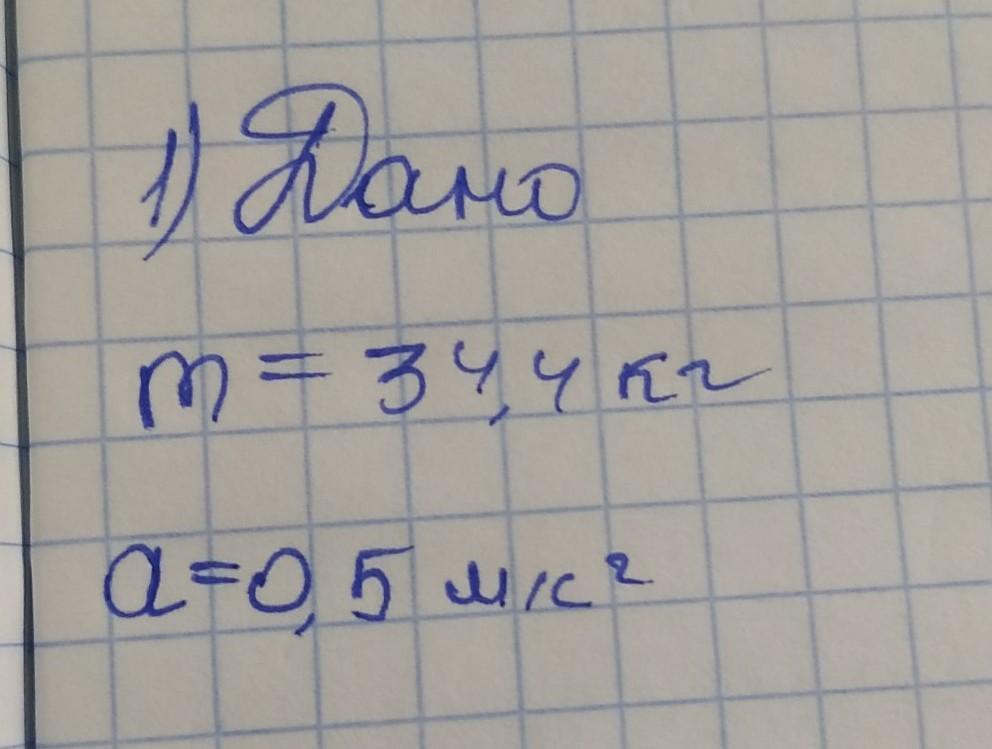 1) Дано
m = 34,4 кг
a = 0,5 м/с²